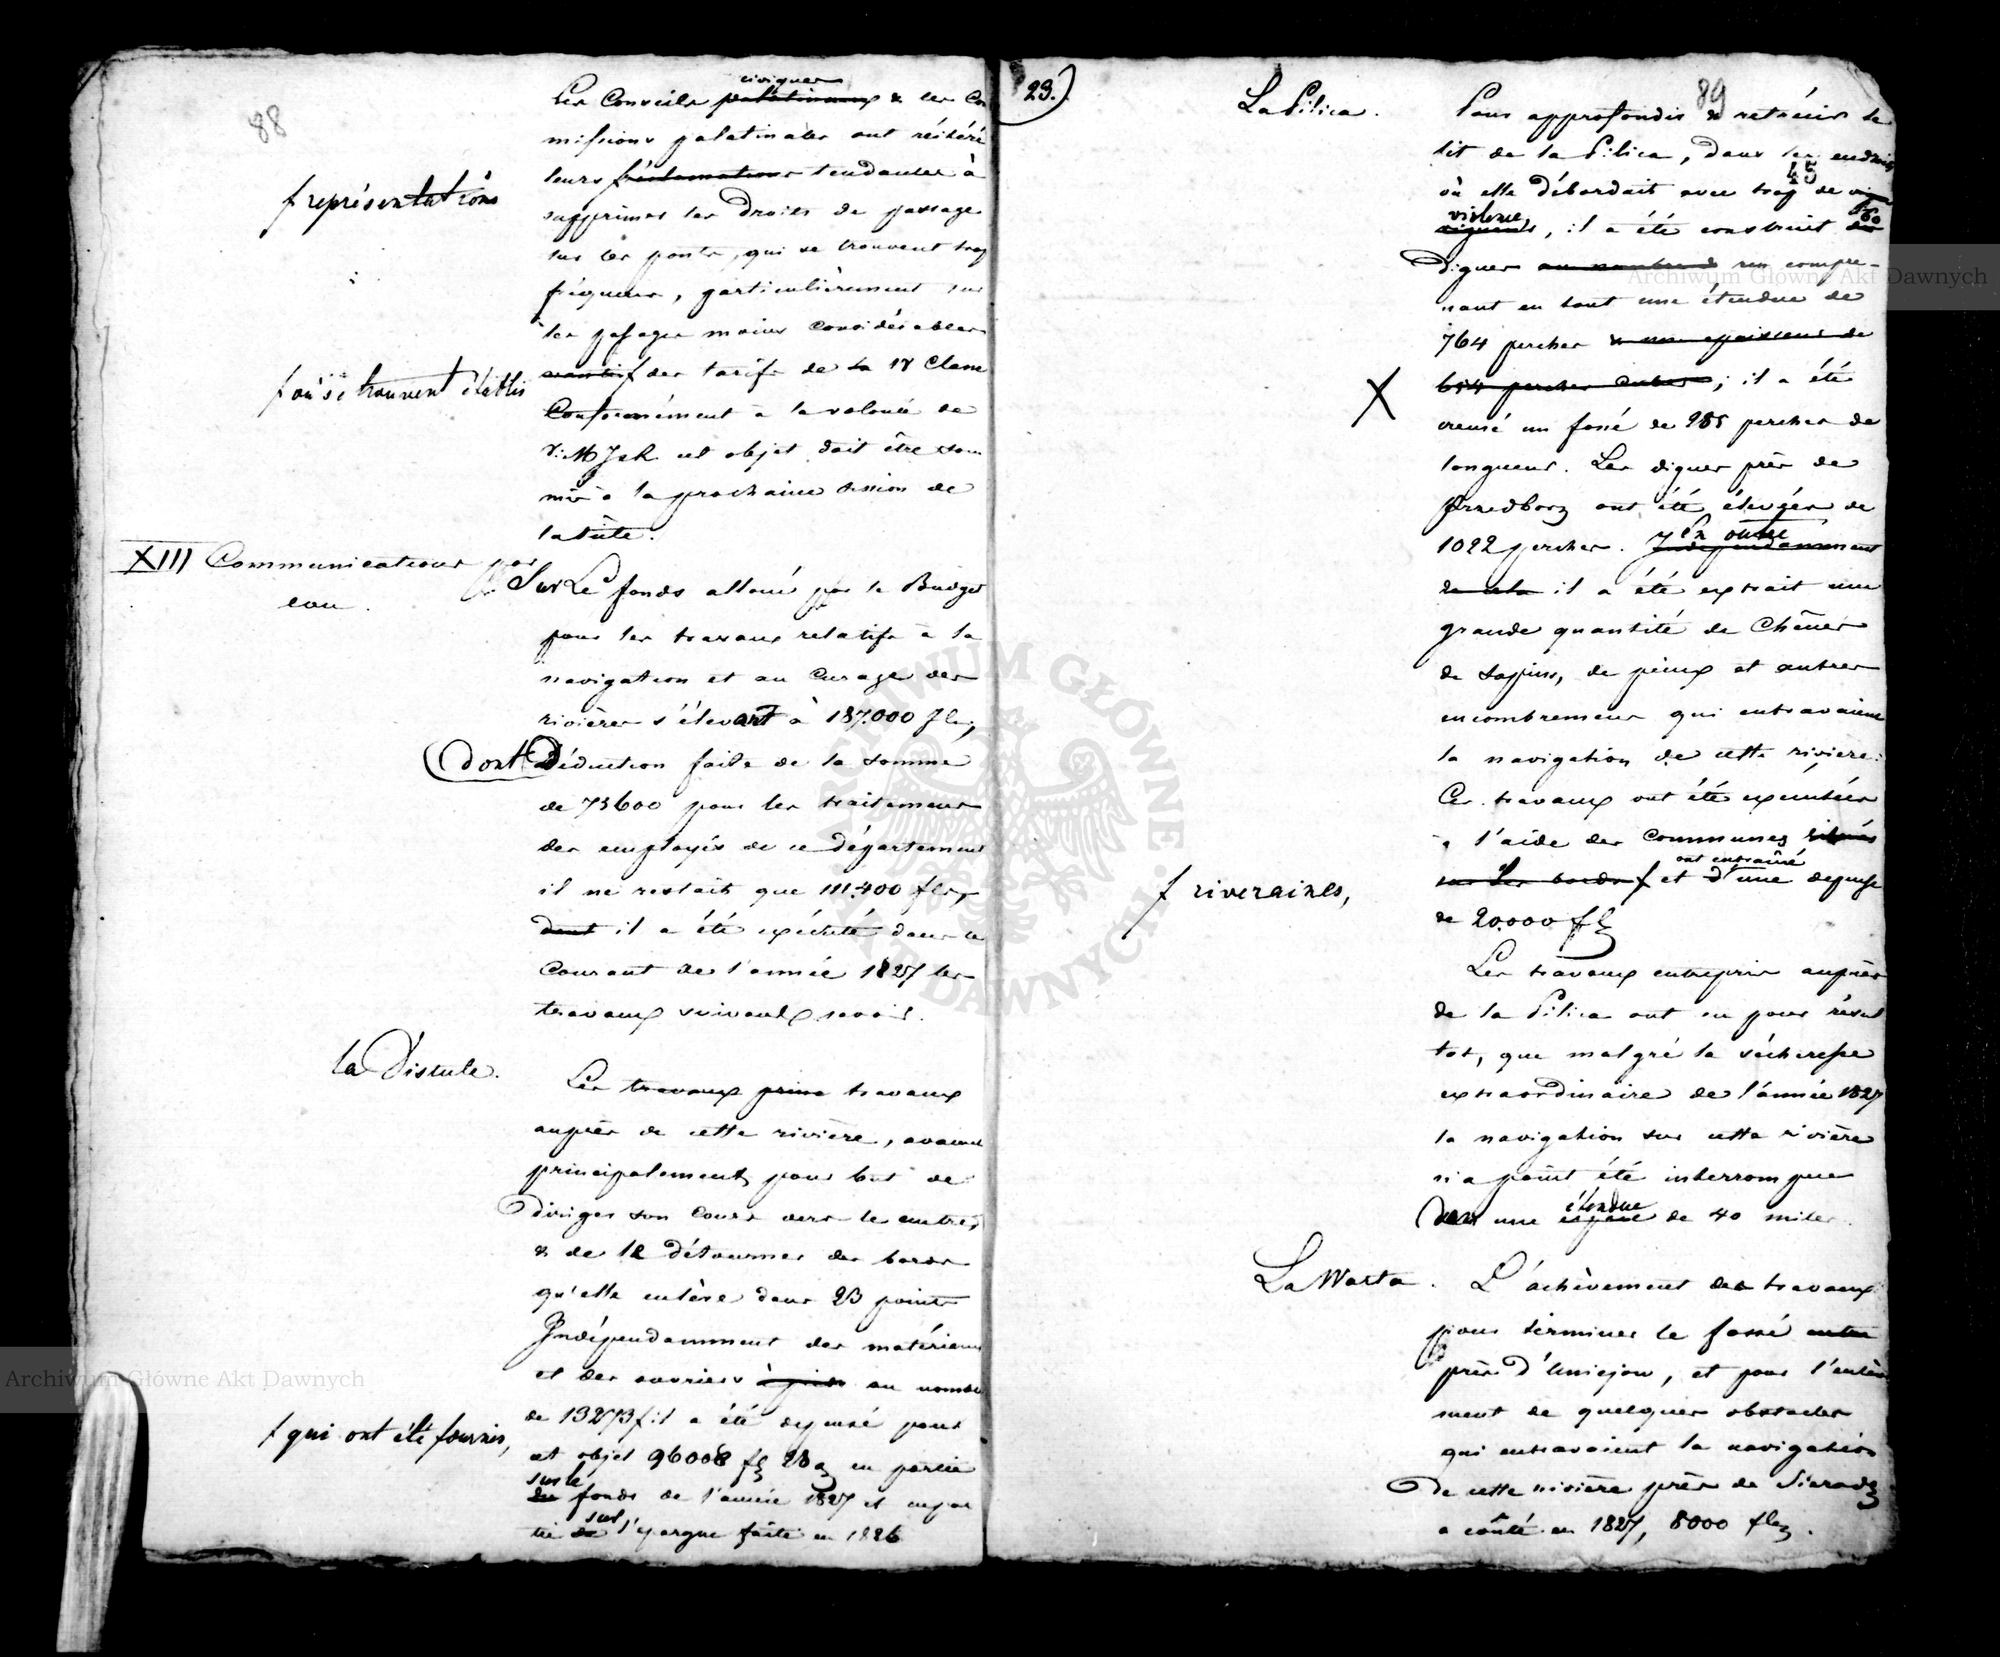 88
civiques
Les Conseils palatinaux & les Com
missions palatinales ont réitéré
leurs réclamations tendantes à
f représentations
supprimer les Droits de passage
sur les ponts, qui se trouvent trop
fréquens, particulièrement sur
les passages moins considérables
suivis f des tarifs de la 1e Classe
f où se trouvent établis
Conformément à la volonté de
V. M. J & R. cet objet doit être sou
mis à la prochaine session de
la Diète.
XIII Communications par
eau.
Sur Le fonds alloué par le Budget
pour les travaux relatifs à la
navigation et au curage des
rivières s'élevant à 187.000 fls,
dont Déduction faite de la somme
de 75600 pour les traitemens
des employés de ce département
il ne restait que 111.400 fls,
dont il a été exécuté dans le
Courant de l'année 1827 les
travaux suivants savoir.
la Vistule.
Les travaux princ travaux
auprès de cette rivière, avaient
principalement pour but de
diriger son Cours vers le centre
& de le détourner des bords
qu'elle enlève dans 23 points
Indépendamment des matériaux
et des ouvriers à pieds au nombre
de 13273 f il a été depensé pour
f qui ont été fournis,
cet objet 96008 fl 28 g en partie
sur le
du fonds de l'année 1827 et en par
sur
tie de l'epargne faite en 1826
23.)
89
45
La Pilica.
Pour approfondir & retrécir le
lit de la Pilica, dans les endroits
où elle débordait avec trop de
violence, il a été construit
160
des
digues au nombre de compre-
nant en tout une étendue de
764 perches & une epaisseur de
X
654 perches cubes; il a été
creusé un fossé de 285 perches de
longueur. Les digues près de
Przedborz ont été élevées de
1022 perches.
en outre
Independamment
de cela il a été extrait une
grande quantité de Chênes
de sapins, de pieux et autres
encombremens qui entravaient
la navigation de cette rivière.
Ces travaux ont été exécutés
à l'aide des communes situées
ont entrainé
sur les bords f et d'une depense
f riveraines,
de 20.000 fl
Les travaux entrepris auprès
de la Pilica ont eu pour résul
tat, que malgré la sécheresse
extraordinaire de l'année 1827
la navigation sur cette rivière
n'a point été interrompue
étendue
dans une espace de 40 miles.
La Warta.
L'achèvement des travaux
pour terminer le fossé entre
près d'Uniejow, et pour l'enlève
ment de quelques obstacles
qui entravaient la navigation
de cette rivière près de Sieradz
a coûté en 1827, 8000 fls.
Archiwum Główne Akt Dawnych
Archiwum Główne Akt Dawnych
ARCHIWUM GŁÓWNE AKT DAWNYCH